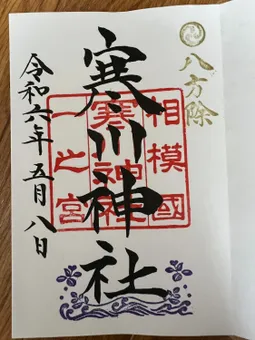 八方除
寒川神社
相模國
寒川神社
一之宮
令和六年五月八日